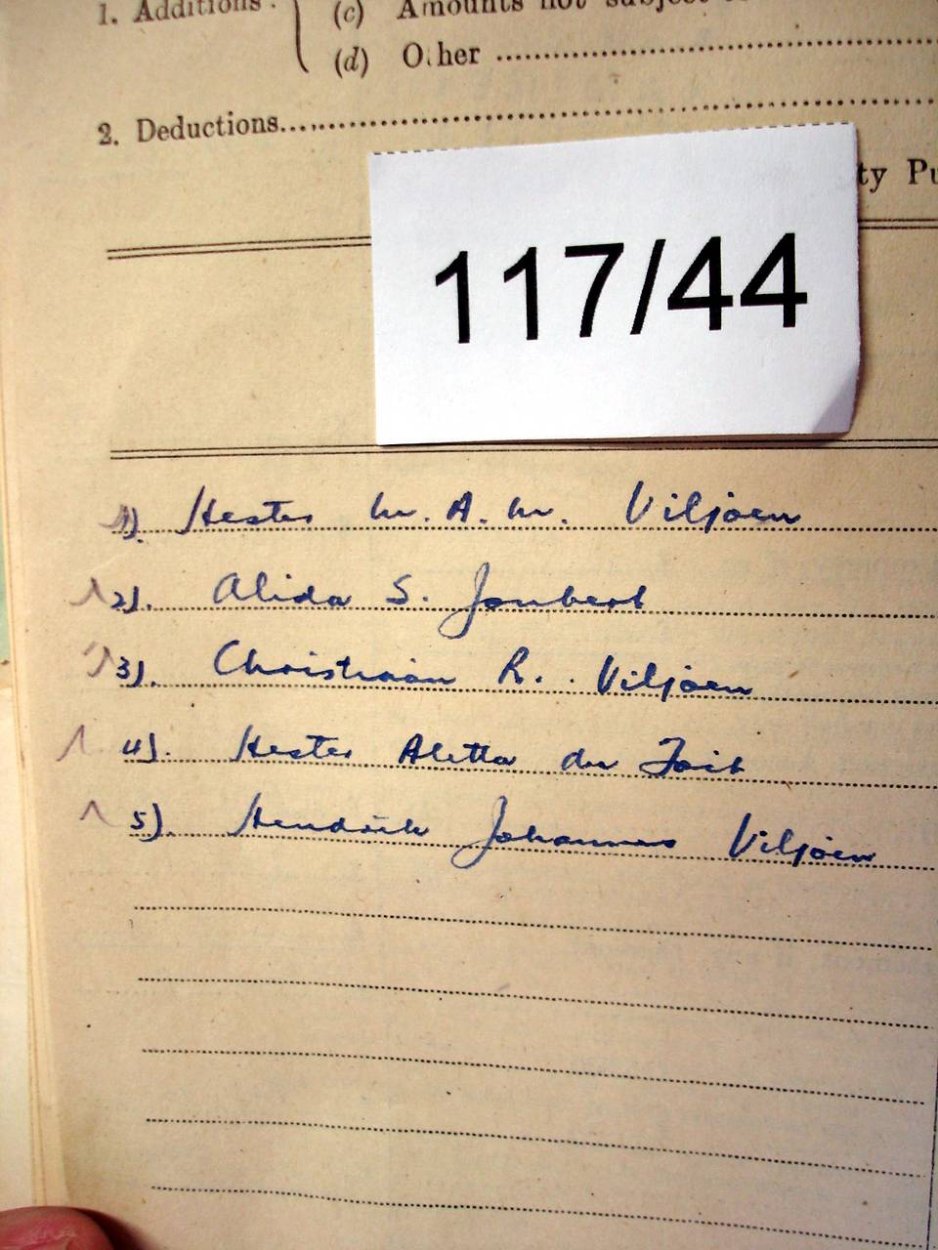 1. Additions :
(c) Amounts not subject
(d) Other
2. Deductions
ty Pu
117/44
1) Hester M. A. M. Viljoen
2). Alida S. Joubert
3). Christiaan R. Viljoen
4). Hester Aletta du Toit
5). Hendrik Johannes Viljoen